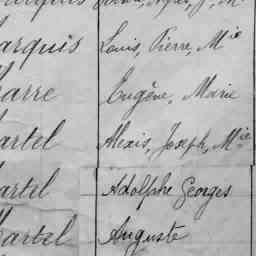 arquis Louis, Pierre, Mie
arre Eugène, Marie
artel Alexis, Joseph, Mie
artel Adolphe Georges
artel Auguste